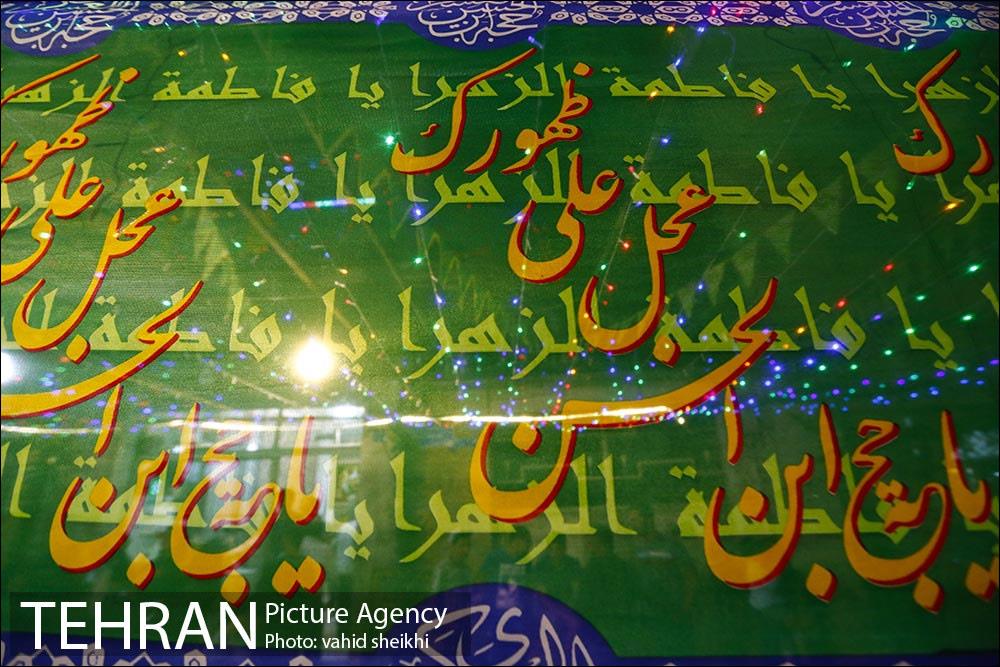 يا فاطمة الزهرا يا فاطمة الزهرا
يا فاطمة الزهرا يا فاطمة
يا فاطمة الزهرا يا فاطمة
يا فاطمة الزهرا يا فاطمة
يا حجة ابن الحسن عجل علی ظهورك
يا حجة ابن الحسن عجل علی ظهورك
TEHRAN Picture Agency
Photo: vahid sheikhi